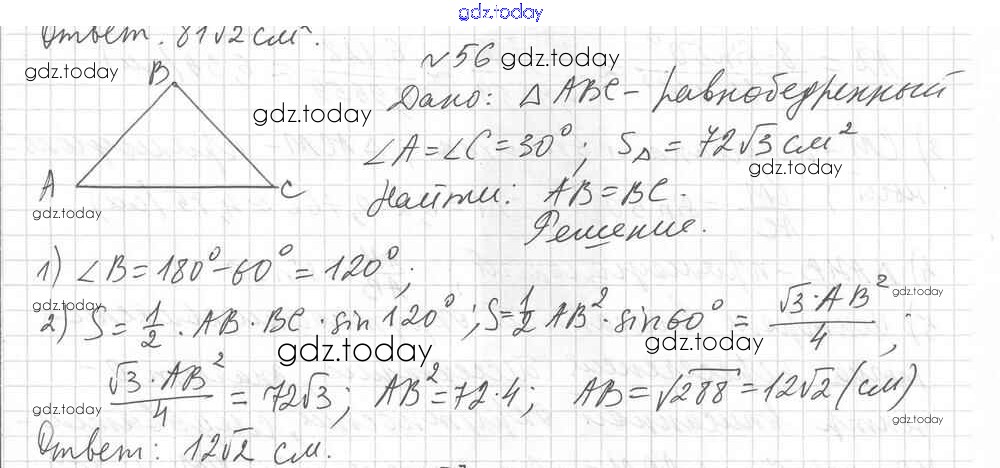 gdz.today
Ответ. 81√2 см².
gdz.today
B
№56 gdz.today
Дано: △ ABC - равнобедренный
gdz.today
∠A = ∠C = 30°; S△ = 72√3 см²
gdz.today
A
C
Найти: AB = BC.
gdz.today
Решение.
1) ∠B = 180° - 60° = 120°;
gdz.today
gdz.today
2) S = 1/2 · AB · BC · sin 120°; S = 1/2 AB² · sin 60° = √3 · AB²/4;
gdz.today
gdz.today
√3 · AB²/4 = 72√3; AB² = 72 · 4; AB = √288 = 12√2 (см)
gdz.today
gdz.today
Ответ: 12√2 см.